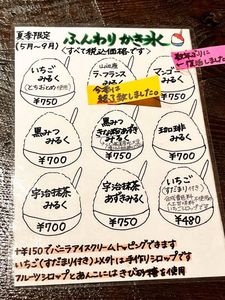 夏季限定
(5月〜9月)
ふんわりかき氷
〈すべて税込価格です〉
数年ぶりに
復活しました。
いちご
みるく
(とちおとめ使用)
¥750
山形産
ラ・フランス
みるく
今季は
終了致しました。
マンゴー
みるく
¥750
黒みつ
みるく
¥700
きな粉あずき
みるく
¥750
珈琲
みるく
¥700
宇治抹茶
みるく
¥700
宇治抹茶
あずきみるく
¥750
いちご
(すだまり付き)
合成着色料
不使用
いちごシロップ
¥480
+¥150でバニラアイスクリームトッピングできます
いちご(すだまり付き)以外は手作りシロップです
フルーツシロップとあんこにはきび砂糖を使用